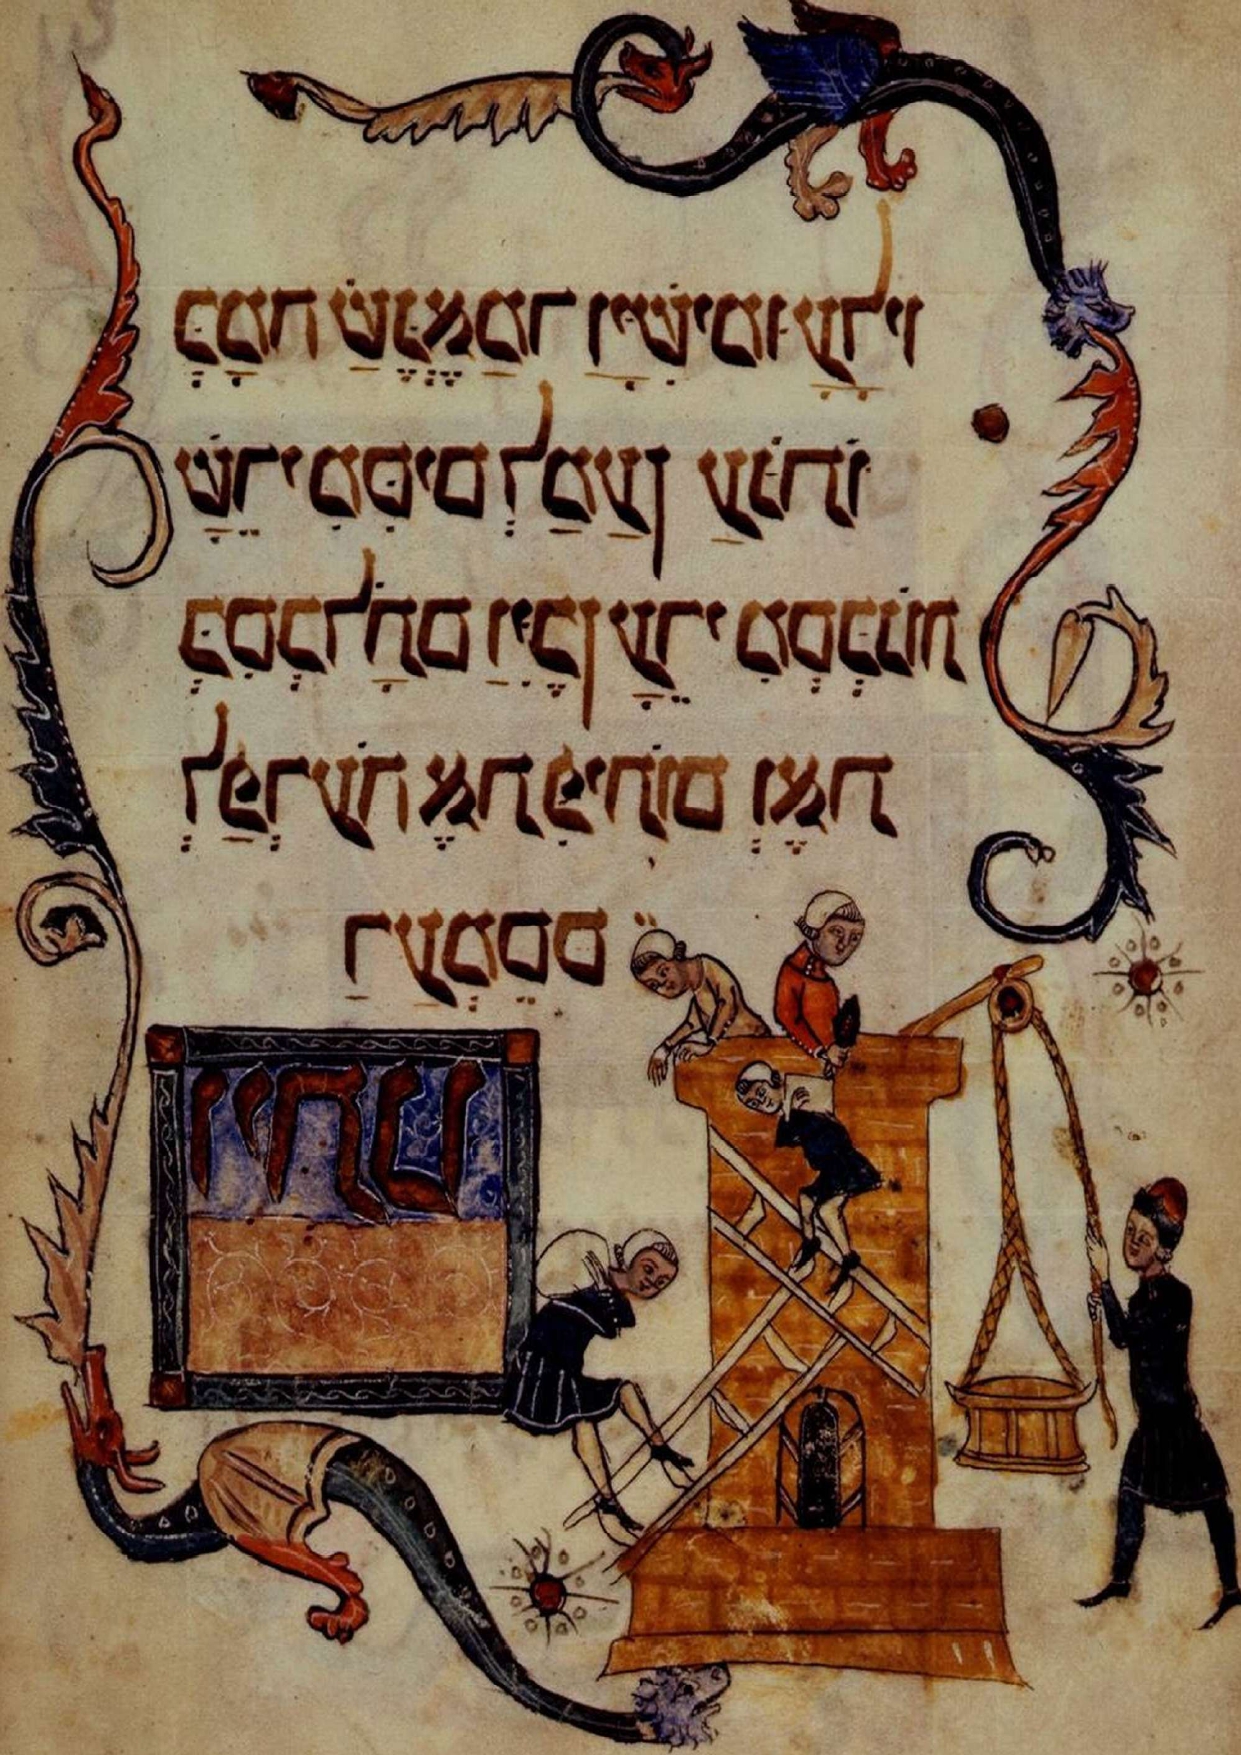 כמה שנאמר וישימו עליו
שרי מסים למען ענותו
בסבלתם ויבן ערי מסכנות
לפרעה את פיתום ואת
רעמסס
ויתנו